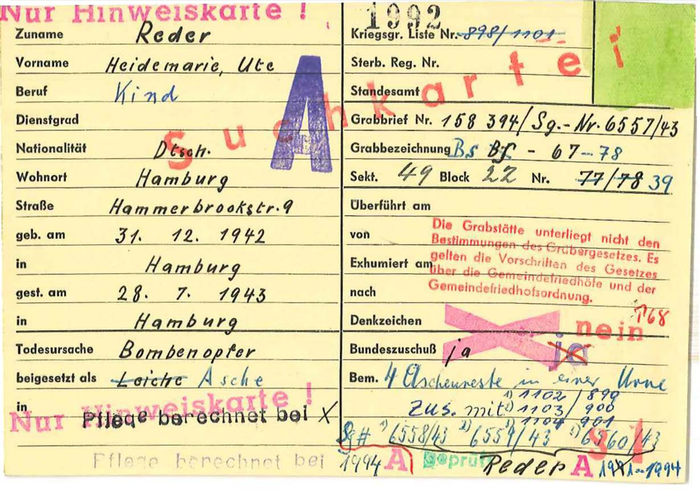 Nur Hinweiskarte !
1992
Zuname Reder
Vorname Heidemarie, Ute
Beruf Kind
Dienstgrad
Nationalität Dtsch.
Wohnort Hamburg
Straße Hammerbrookstr. 9
geb. am 31. 12. 1942
in Hamburg
gest. am 28. 7. 1943
in Hamburg
Todesursache Bombenopfer
beigesetzt als Leiche Asche
in
Nur Hinweiskarte !
Pflege berechnet bei X
Pflege berechnet bei
A
Suchkartei
Kriegsgr. Liste Nr. 898/1101
Sterb. Reg. Nr.
Standesamt
Grabbrief Nr. 158 394/Sg.-Nr. 6557/43
Grabbezeichnung Bs Bf - 67-78
Sekt. 49 Block 22 Nr. 77/78 39
Überführt am
von
Exhumiert am
nach
Die Grabstätte unterliegt nicht den
Bestimmungen des Gräbergesetzes. Es
gelten die Vorschriften des Gesetzes
über die Gemeindefriedhöfe und der
Gemeindefriedhofsordnung.
Denkzeichen nein
Bundeszuschuß ja ja
Bem. 4 Aschenreste in einer Urne
1102/899
zus. mit 1103/900
1104/901
6558/43 2) 6559/43 6560/43
1994 A geprüft Reder A 1994